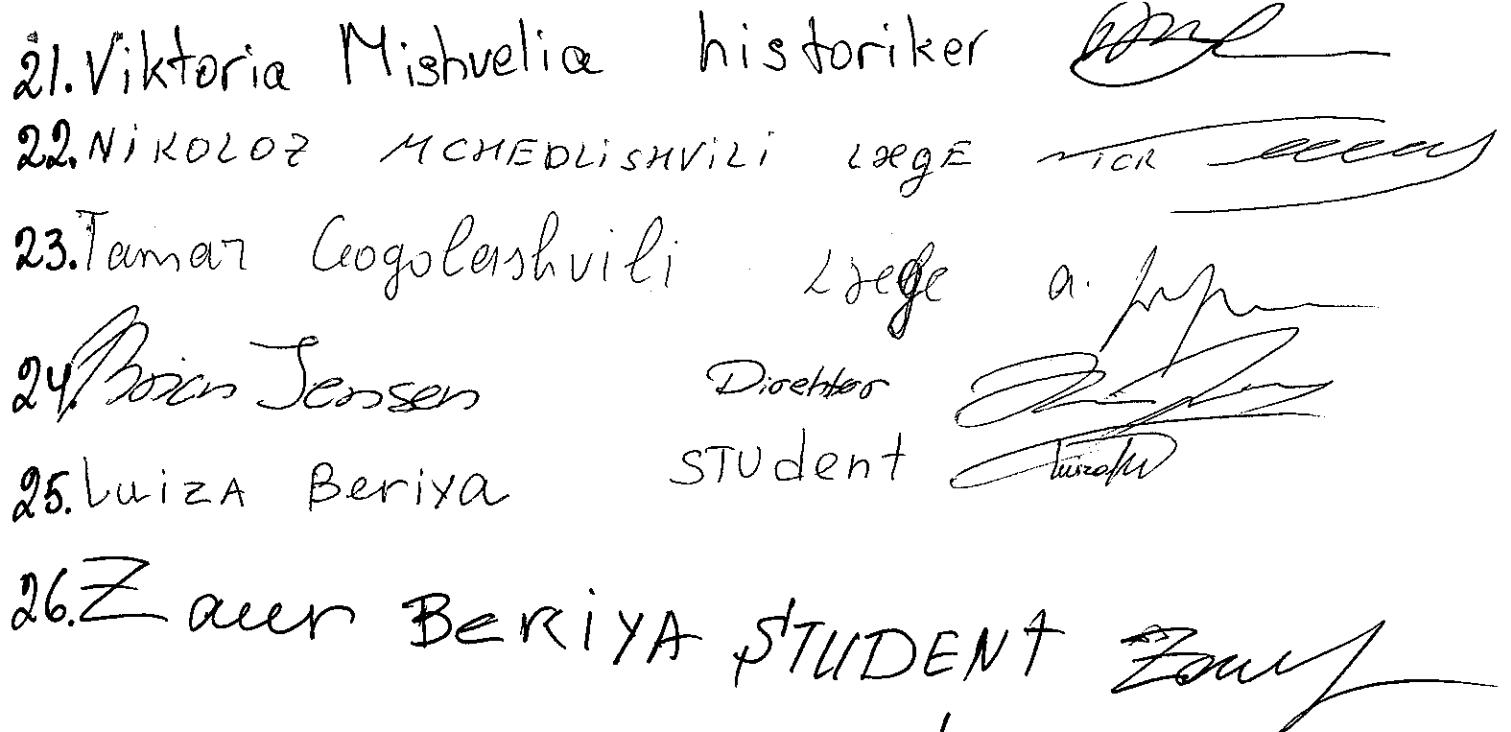 21. Viktoria Mishvelia historiker
22. NiKOLOZ MCHEDLiSHViLi LægE
23. Tamar Gogolashvili Læge
24. Brian Jensen Direktør
25. LuizA Beriya STUdent
26. Zaur BeRiYA STUDENt